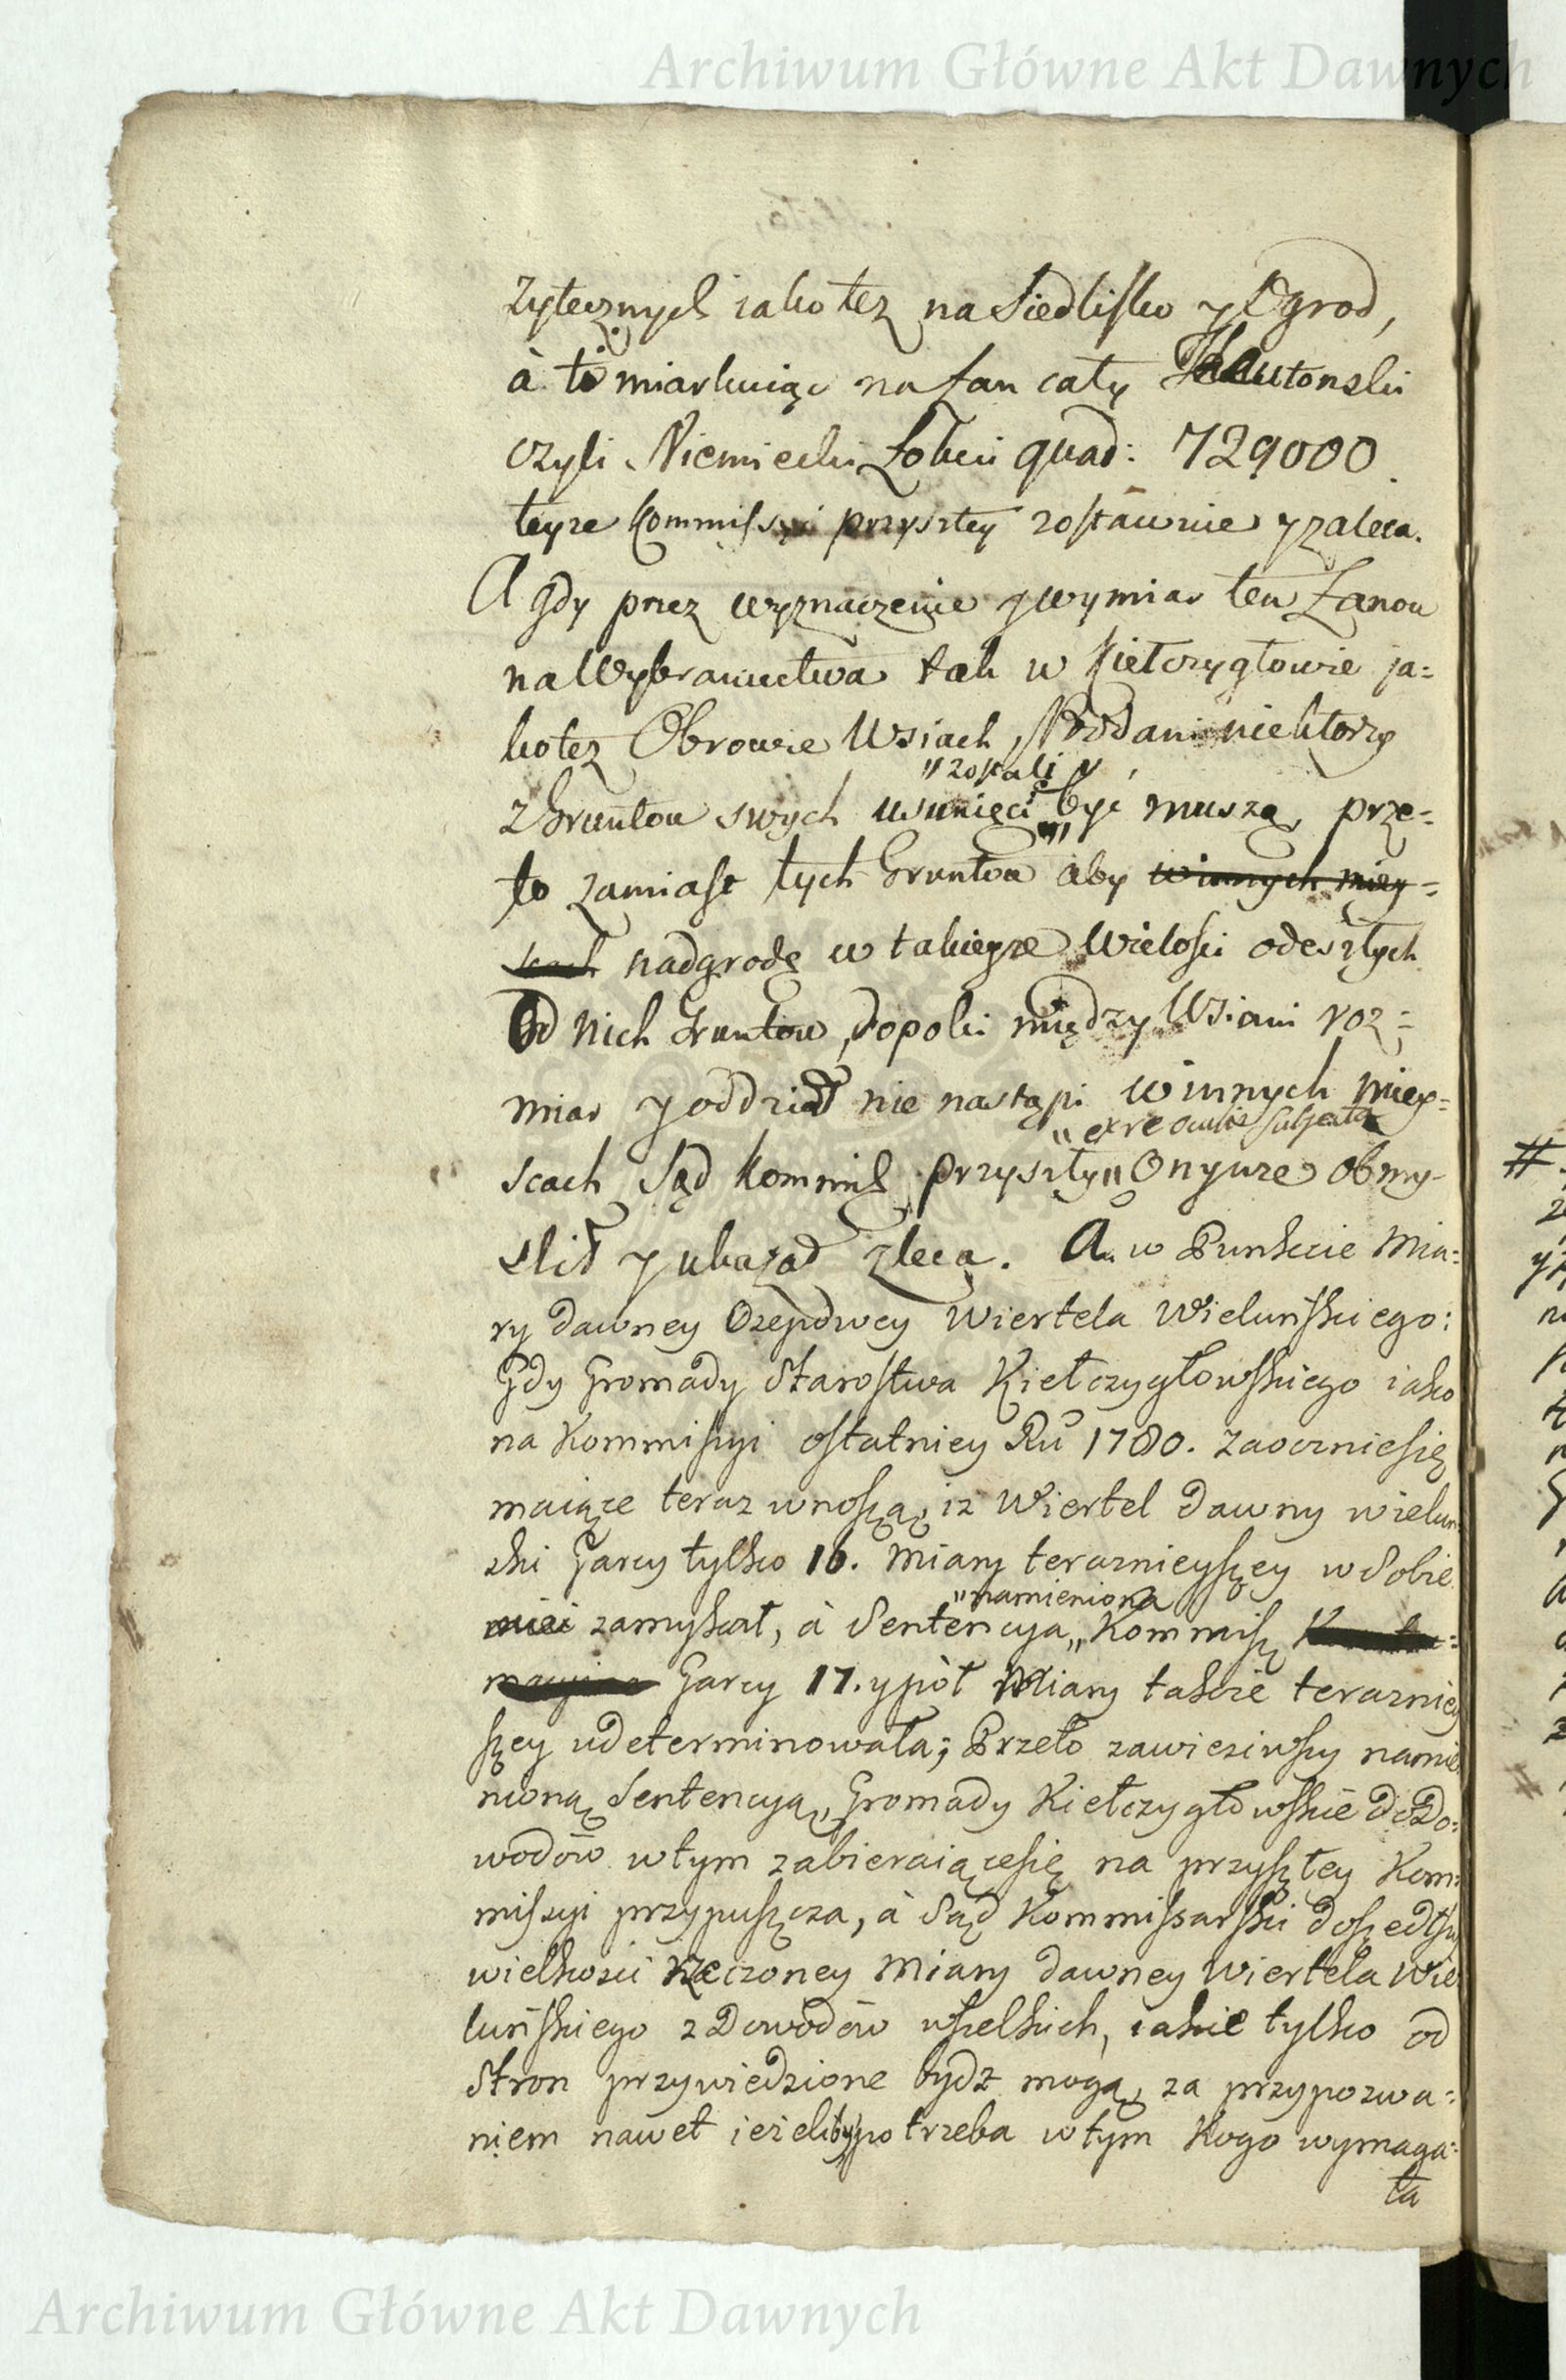 Archiwum Główne Akt Dawnych
żytecznych iako tez na Siedlisko y Ogrod,
à to miarkuiąc na Łan cały Teutonski
czyli Niemiecki Łokci quad: 729000.
teyze Kommissyi przyszłey zostawuie y zaleca.
A gdy przez wyznaczenie y wymiar ten Łanow
na Wybraniectwa tak w Kiełczygłowie ja=
kotez Obrowie Wsiach, Poddani niektorzy
"zostali
z Gruntow swych usunięci być muszą, prze=
to zamiast tych Gruntow aby w innych miey=
scach nadgrodę w takieyze Wielości odeszłych
Od nich Gruntow, dopoki między Wsiami roz=
miar y oddział nie nastąpi w innych miey=
"ex re oculis subjecta
scach Sąd Kommis: przyszły" Onymze obmy=
slił y ukazał zleca. A w Punkcie Mia=
ry dawney Osepowey Wiertela Wieluńskiego:
Gdy Gromady Starostwa Kiełczygłowskiego iako
na Kommissyi ostatniey Ru 1780. zaocznie się
maiące teraz wnoszą, iz Wiertel dawny wielun=
ski Garcy tylko 16. Miary teraznieyszey w Sobie
zamykał, à Sentencya" Kommissy
"namieniona
Garcy 17. y pół Miary takze teraznie=
szey udeterminowała; Przeto zawiesiwszy namie=
nioną Sentencyą, Gromady Kiełczygłowskie do Do=
wodów w tym zabieraiące się na przyszłey Kom=
missyi przypuszcza, à Sąd Kommissarski doszedłszy
wielkości rzeczoney Miary dawney Wiertela Wie=
luńskiego z Dowodów wszelkich, iakie tylko od
Stron przywiedzione bydz mogą, za przypozwa=
niem nawet ieżeliby potrzeba w tym Kogo wymaga=
ła
Archiwum Główne Akt Dawnych